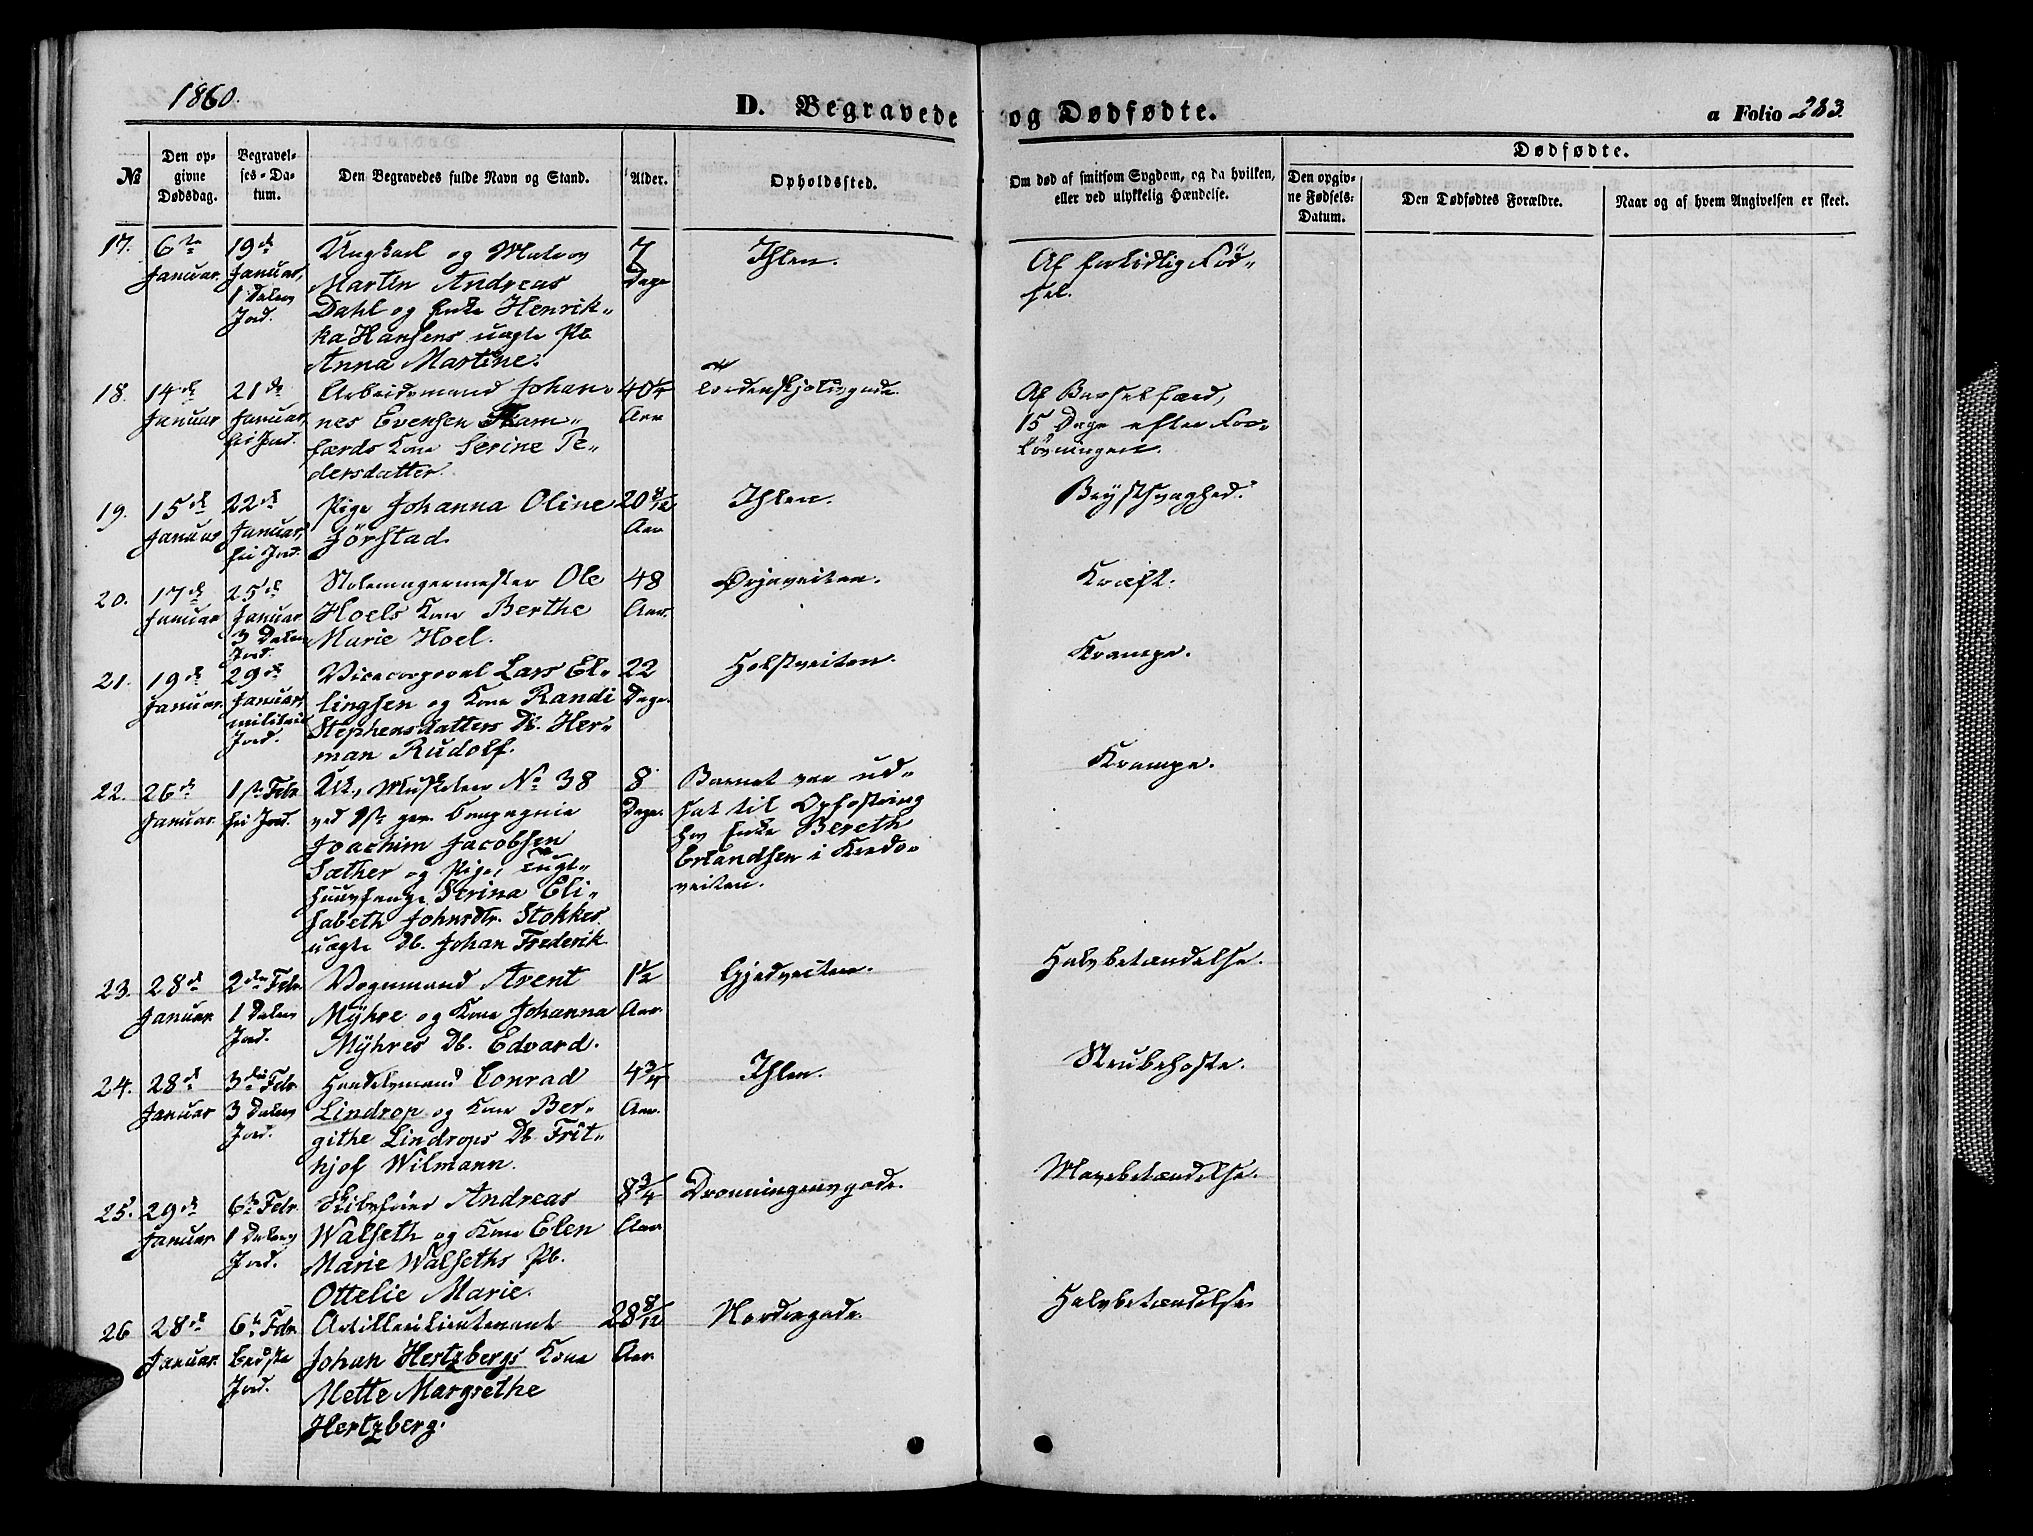 1860.
D. Begravede og Dødfødte.
a Folio 283.
№
Den opgivne Dødsdag.
Begravelses-Datum.
Den Begravedes fulde Navn og Stand.
Alder.
Opholdssted.
Om død af smitsom Sygdom, og da hvilken, eller ved ulykkelig Hændelse.
Dødfødte.
Den opgivne Fødsels-Datum.
Den Dødfødtes Forældre.
Naar og af hvem Angivelsen er skeet.
17. 6te Januar. 19de Januar, 1 Dalers Jord.
Ungkarl og Matros
Martin Andreas
Dahl og Enke Henrik-
ka Hansens uægte Pb.
Anna Martine.
7 Dage
Ihlen.
Af fortidlig Fød-
sel.
18. 14de Januar 21de Januar, fri Jord.
Arbeidsmand Johan-
nes Evensen Ham-
færds Kone Serine Pe-
dersdatter.
40 1/4 Aar
Tordenskjoldsgade.
Af Barselfærd,
15 Dage efter For-
løsningen.
19. 15de Januar 22de Januar, fri Jord.
Pige Johanna Oline
Jörstad.
20 8/12 Aar
Ihlen.
Brystsvaghed.
20. 17de Januar 25de Januar 3 Dalers Jord.
Stolemagermester Ole
Hoels Kone Berthe
Marie Hoel.
48 Aar.
Ørjaveiten.
Kræft.
21. 19de Januar. 29de Januar, militair Jord.
Vicecorporal Lars El-
lingsen og Kone Randi
Stephensdatters Db. Her-
man Rudolf.
22 Dage.
Holstveiten.
Krampe.
22. 26de Januar. 1ste Febr. fri Jord.
Musketeer No 38
ved 1ste ger. Compagnie
Joachim Jacobsen
Sæther og Pige, Tugt-
huusfange Strina Eli-
sabeth Johnsdtr. Stokkes
uægte Db. Johan Frederik
8 Dage.
Barnet var ud-
sat til Opfostring
hos Enke Bereth
Erlandsen i
veiten.
Krampe.
23. 28de Januar 2den Febr. 1 Dalers Jord.
Vognmand Arent
Mÿhre og Kone Johanna
Mÿhres Db. Edvard.
1 1/2 Aar
Gjedveiten.
Halsbetændelse.
24. 28de Januar 3die Febr. 3 Dalers Jord.
Handelsmand Conrad
Lindrop og Kone Ber-
githe Lindrops Db. Frit-
hjof Wilmann.
4 3/4 Aar.
Ihlen.
Strubehoste.
25. 29de Januar 6te Febr. 1 Dalers Jord.
Skibsfører Andreas
Walseth og Kone Elen
Marie Walseths Pb.
Ottelie Marie.
8 3/4 Aar
Dronningensgade.
Mavebetændelse.
26 28de Januar. 6te Febr. bedste Jord.
Artillerilieutenant
Johan Hertzbergs Kone
Mette Margrethe
Hertzberg.
28 8/12 Aar
Nordregade.
Halsbetændelse